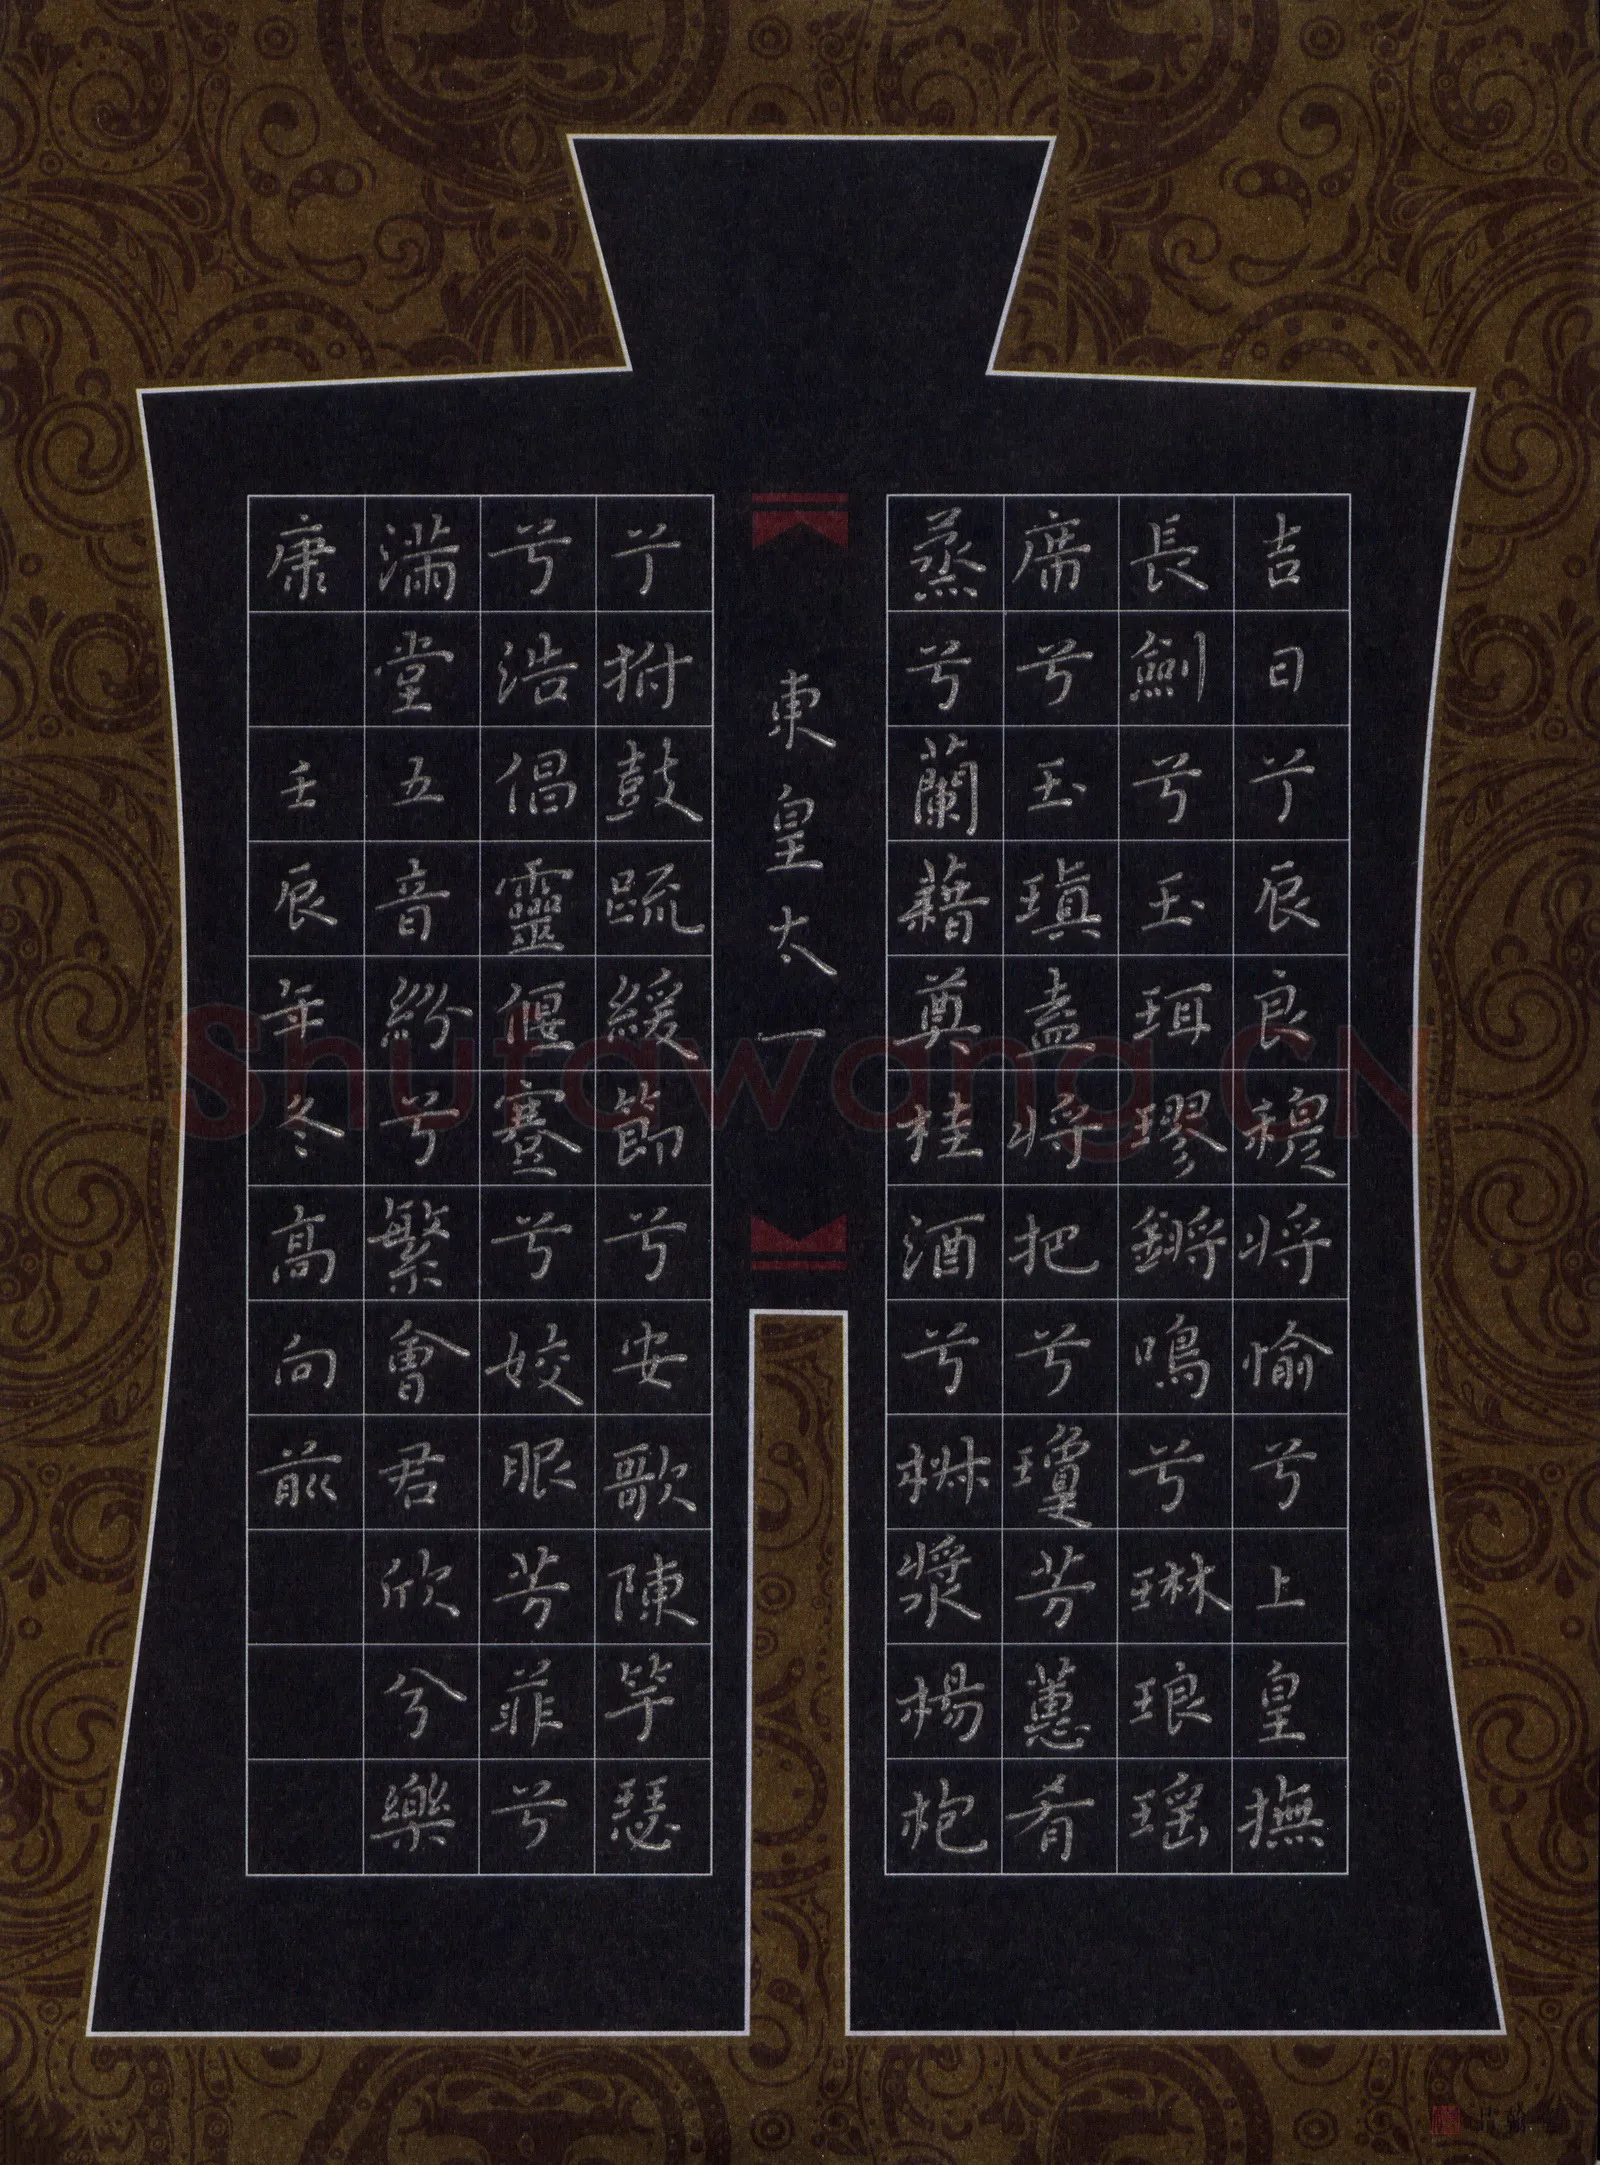 吉日兮辰良穆将愉兮上皇撫
長劍兮玉珥璆鏘鳴兮琳琅瑶
席兮玉瑱盍将把兮瓊芳蕙肴
蒸兮蘭藉奠桂酒兮椒漿楊枹
東皇太一
兮拊鼓疏緩節兮安歌陳竽瑟
兮浩倡靈偃蹇兮姣服芳菲兮
滿堂五音紛兮繁會君欣兮樂
康 壬辰年冬高向前
Shufawang.CN